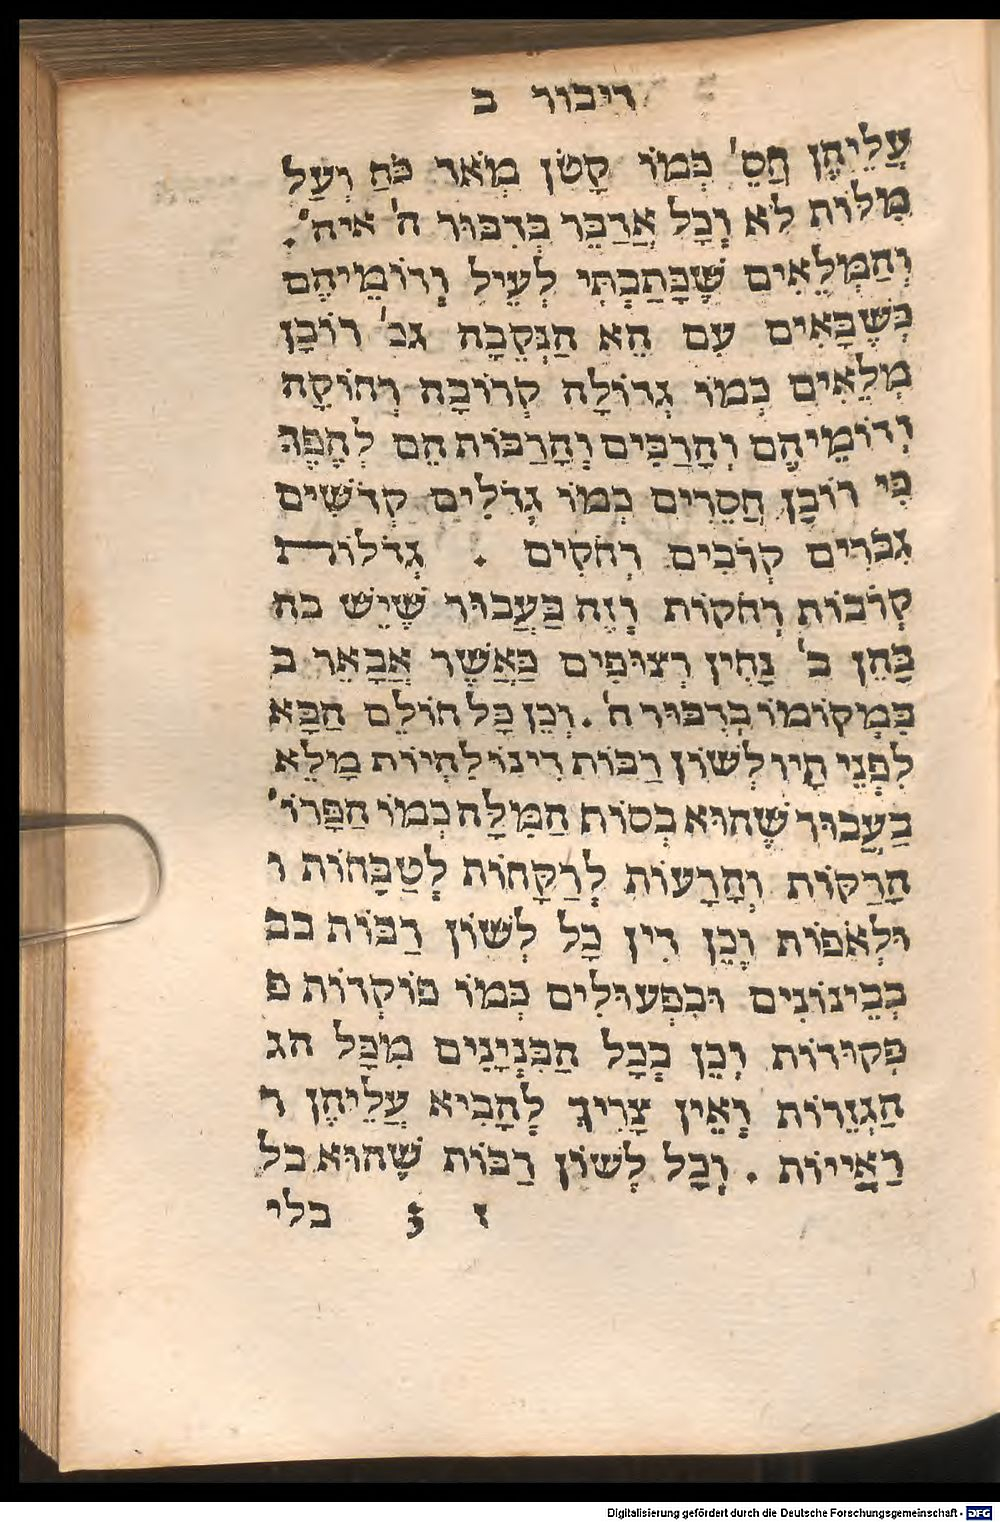 דיבור ב
עֲלֵיהֶן חֲסֵ' כְּמוֹ קָטֹן מְאֹד כֹּחַ וְעַל
מִלּוֹת לֹא וְכָל אֲדַבֵּר בְּדִבּוּר ה' אי״ה׳.
וְהַמְּלֵאִים שֶׁכָּתַבְתִּי לְעֵיל וְדוֹמֵיהֶם
כְּשֶׁבָּאִים עִם הֵא הַנְּקֵבָה גכ' רוֹבָן
מְלֵאִים כְּמוֹ גְדוֹלָה קְרוֹבָה רְחוֹקָה
וְדוֹמֵיהֶם וְהָרַבִּים וְהָרַבּוֹת הֵם לְהֶפֶךְ
כִּי רוֹבָן חֲסֵרִים כְּמוֹ גְדֹלִים קְדֹשִׁים
גִבֹּרִים קְרֹבִים רְחֹקִים . גְדֹלוֹת
קְרֹבוֹת רְחֹקוֹת וְזֶה בַּעֲבוּר שֶׁיֵּשׁ בה
בָּהֵן ב' נָחִין רְצוּפִים כַּאֲשֶׁר אֲבָאֵר ב
בִּמְקוֹמוֹ בְּדִבּוּר ה'. וְכֵן כָּל חוֹלֵם הַבָּא
לִפְנֵי תָיו לְשׁוֹן רַבּוֹת דִּינוֹ לִהְיוֹת מָלֵא
בַּעֲבוּר שֶׁהוּא בְסוֹף הַמִּלָּה כְּמוֹ הַפָּרוֹ'
הָרַקּוֹת וְהָרָעוֹת לְרַקָּחוֹת לְטַבָּחוֹת ו
וּלְאֹפוֹת וְכֵן דִּין כָּל לְשׁוֹן רַבּוֹת בב
בְּבֵינוֹנִים וּבִפְעוּלִים כְּמוֹ פּוֹקְדוֹת פ
פְּקוּדוֹת וְכֵן בְּכָל הַבִּנְיָנִים מִכָּל הג
הַגְּזֵרוֹת וְאֵין צָרִיךְ לְהָבִיא עֲלֵיהֶן ר
רַאֲיָיוֹת . וְכָל לְשׁוֹן רַבּוֹת שֶׁהוּא בל
בלי
Digitalisierung gefördert durch die Deutsche Forschungsgemeinschaft - DFG